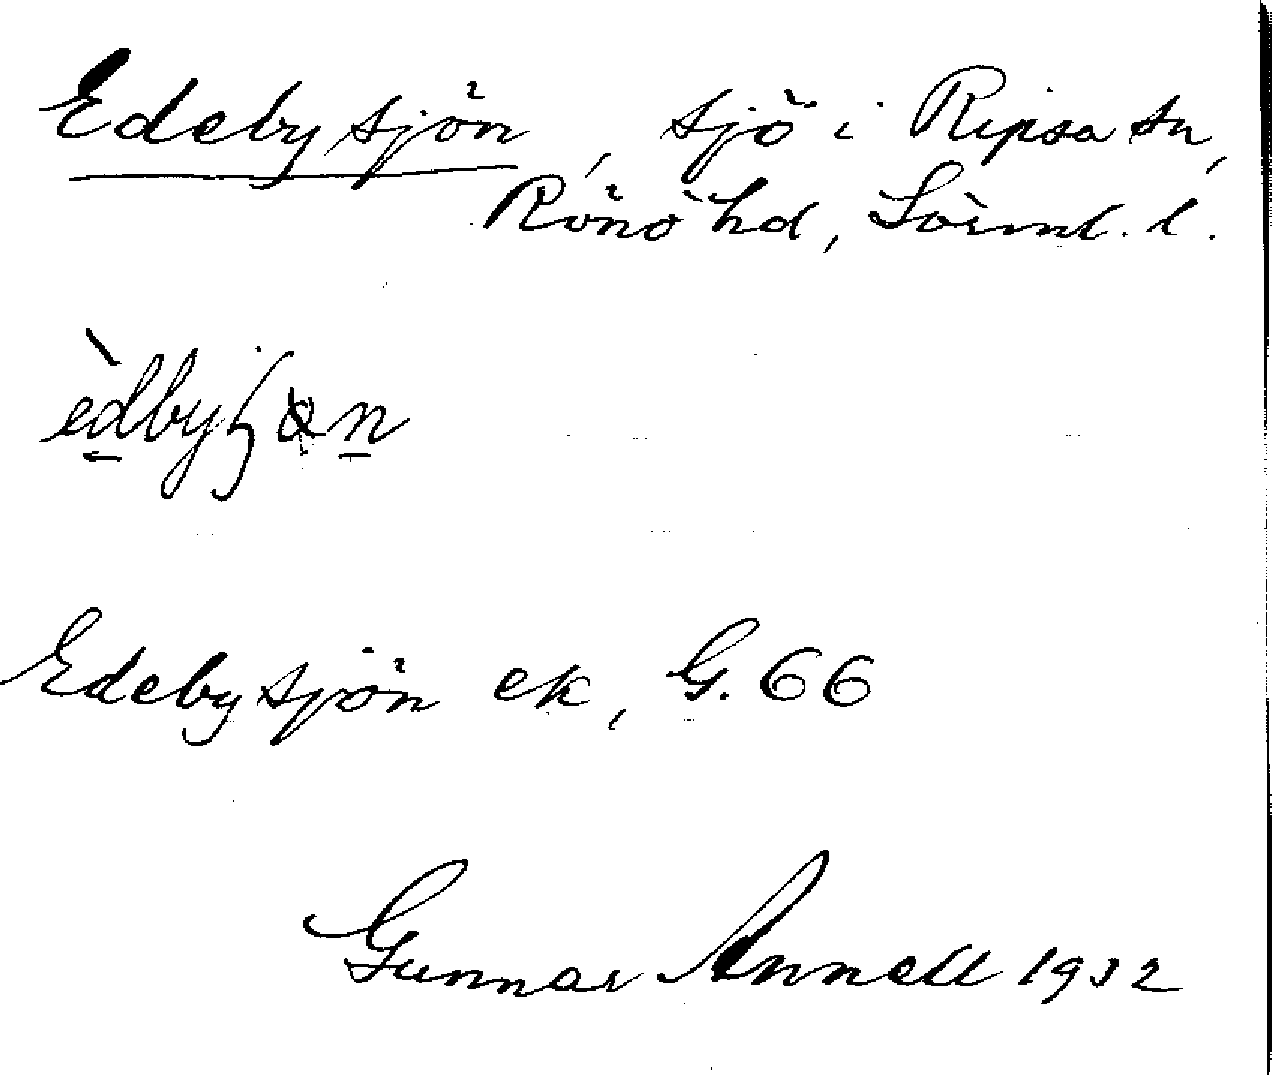 Edebysjön, sjö i Ripsa sn,
Rönö hd, Södml. l.
èdbyʃøn
Edebysjön ek, G. 66
Gunnar Annell 1932